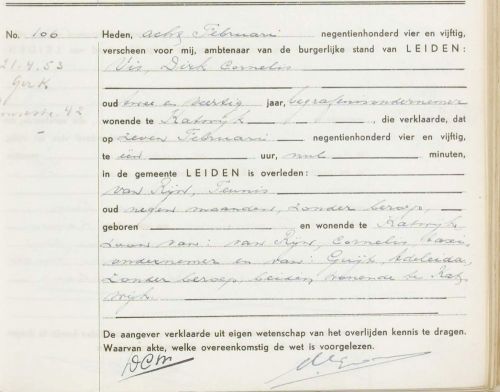 No. 106
Heden, acht Februari negentienhonderd vier en vijftig,
verscheen voor mij, ambtenaar van de burgerlijke stand van LEIDEN:
Vis, Dirk Cornelis
oud twee en veertig jaar, begrafenisondernemer
wonende te Katwijk, die verklaarde, dat
op zeven Februari negentienhonderd vier en vijftig,
te één uur, nul minuten,
in de gemeente LEIDEN is overleden:
van Rijn, Teunis
oud negen maanden, zonder beroep,
geboren en wonende te Katwijk
zoon van: van Rijn, Cornelis, taxi-
ondernemer en van: Guijt, Adelaida,
zonder beroep, beiden wonende te Kat-
wijk.
De aangever verklaarde uit eigen wetenschap van het overlijden kennis te dragen.
Waarvan akte, welke overeenkomstig de wet is voorgelezen.
21.4.53
42